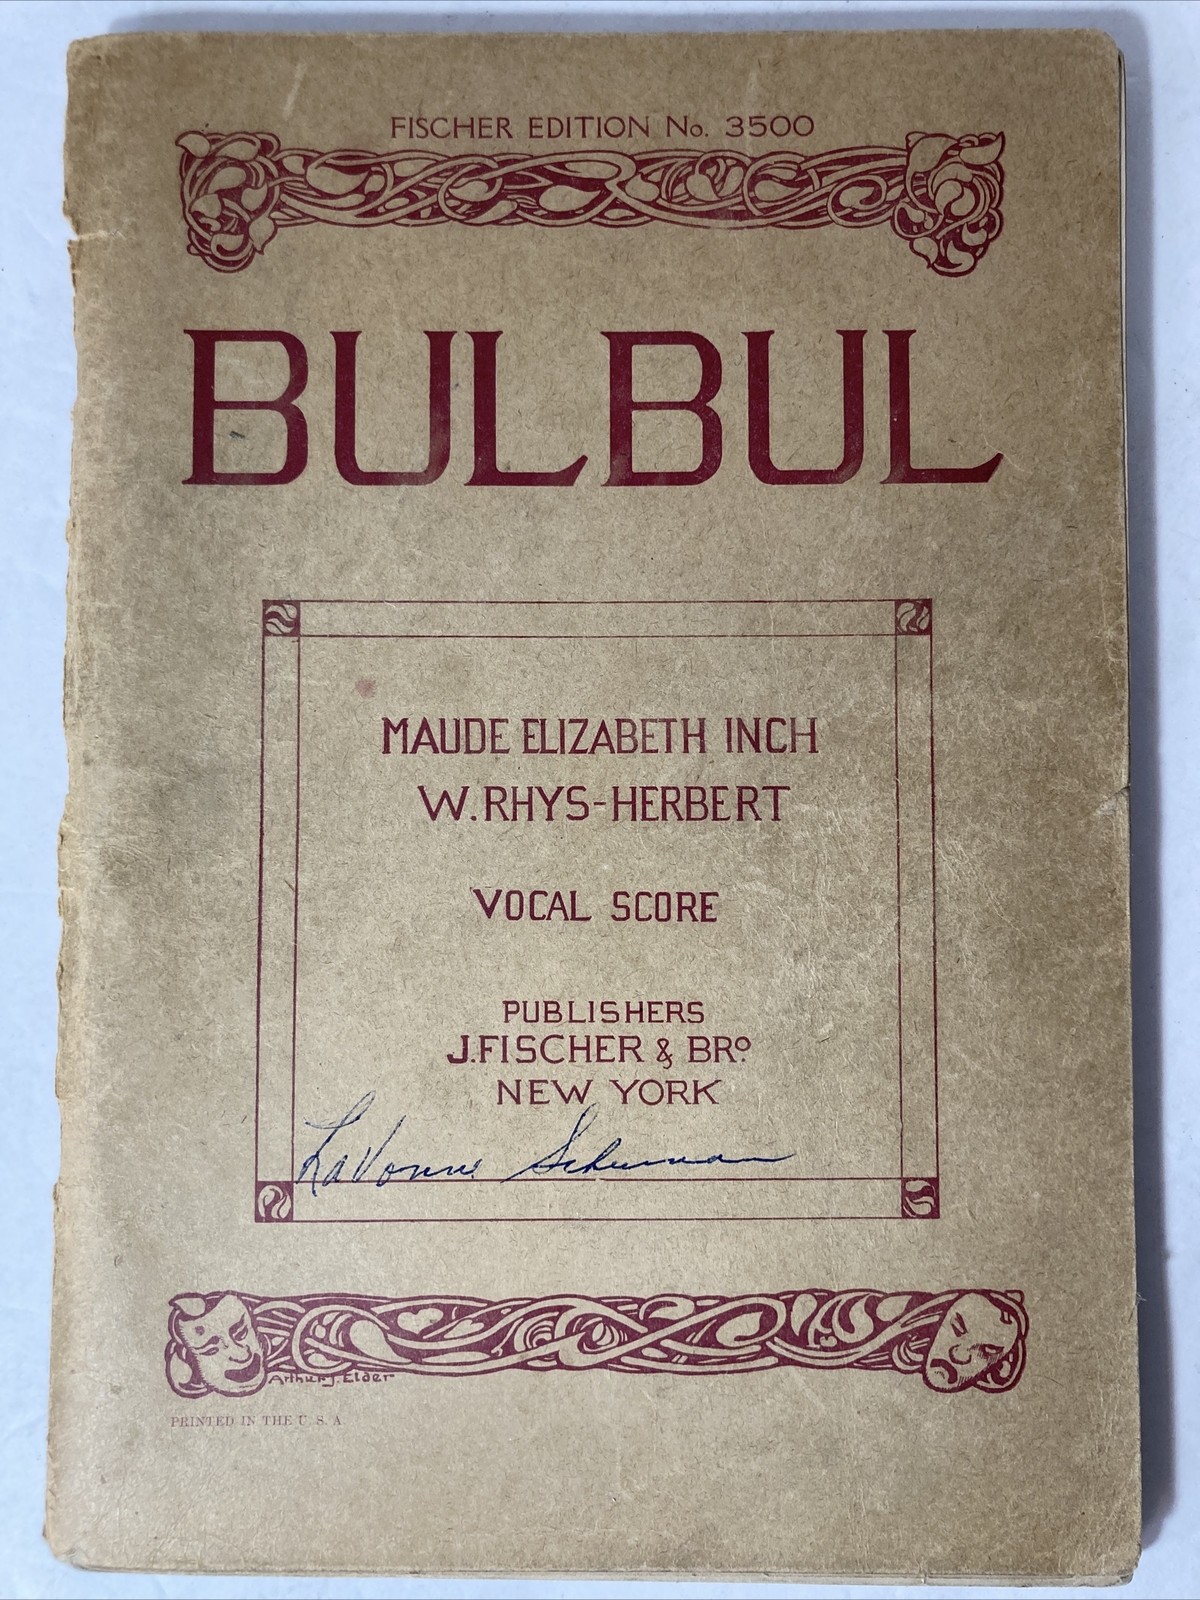 FISCHER EDITION No. 3500
BULBUL
MAUDE ELIZABETH INCH
W. RHYS-HERBERT
VOCAL SCORE
PUBLISHERS
J. FISCHER & BRO.
NEW YORK
LaVonne Schuman
Arthur J. Elder
PRINTED IN THE U. S. A.